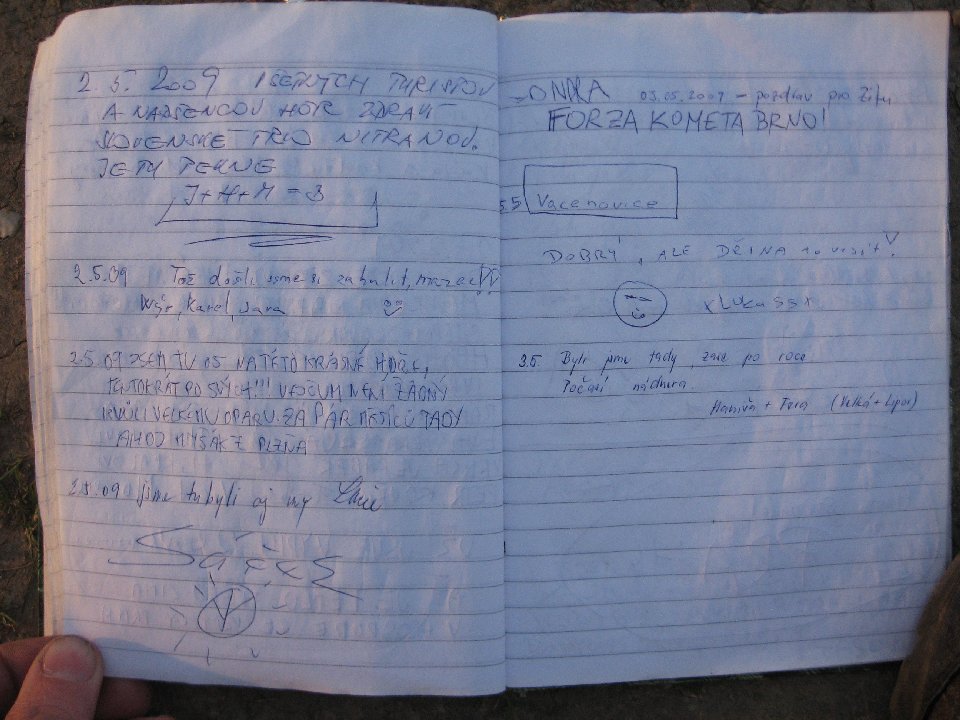 2.5. 2009 VŠETKÝCH TURISTOV
A NADŠENCOV HÔR ZDRAVÍ
SLOVENSKÉ TRIO NITRANOV.
JE TU PEKNE
J+H+M = 3
2.5.09 Tož došli sme si zahulit,
Karel, Jara
2.5.09 JSEM TU OS NA TÉTO KRÁSNÉ HOŘE,
TENTOKRÁT PO SVÝCH!!! VEČUM NENÍ ŽÁDNÝ
KVŮLI VELKÉMU OPARU. ZA PÁR MĚSÍCŮ TADY
AHOJ MYŠÁK Z PLZŇA
2.5.09 jsme tu byli aj my
ONDRA 03.05.2009 – pozdrav pro Zitu
FORZA KOMETA BRNO!
5.5 Vacenovice
DOBRÝ, ALE
3.5. Byli jsme tady, zase po roce.
Počasí nádhera.
Hanina + Tera (Velká + Lipov)